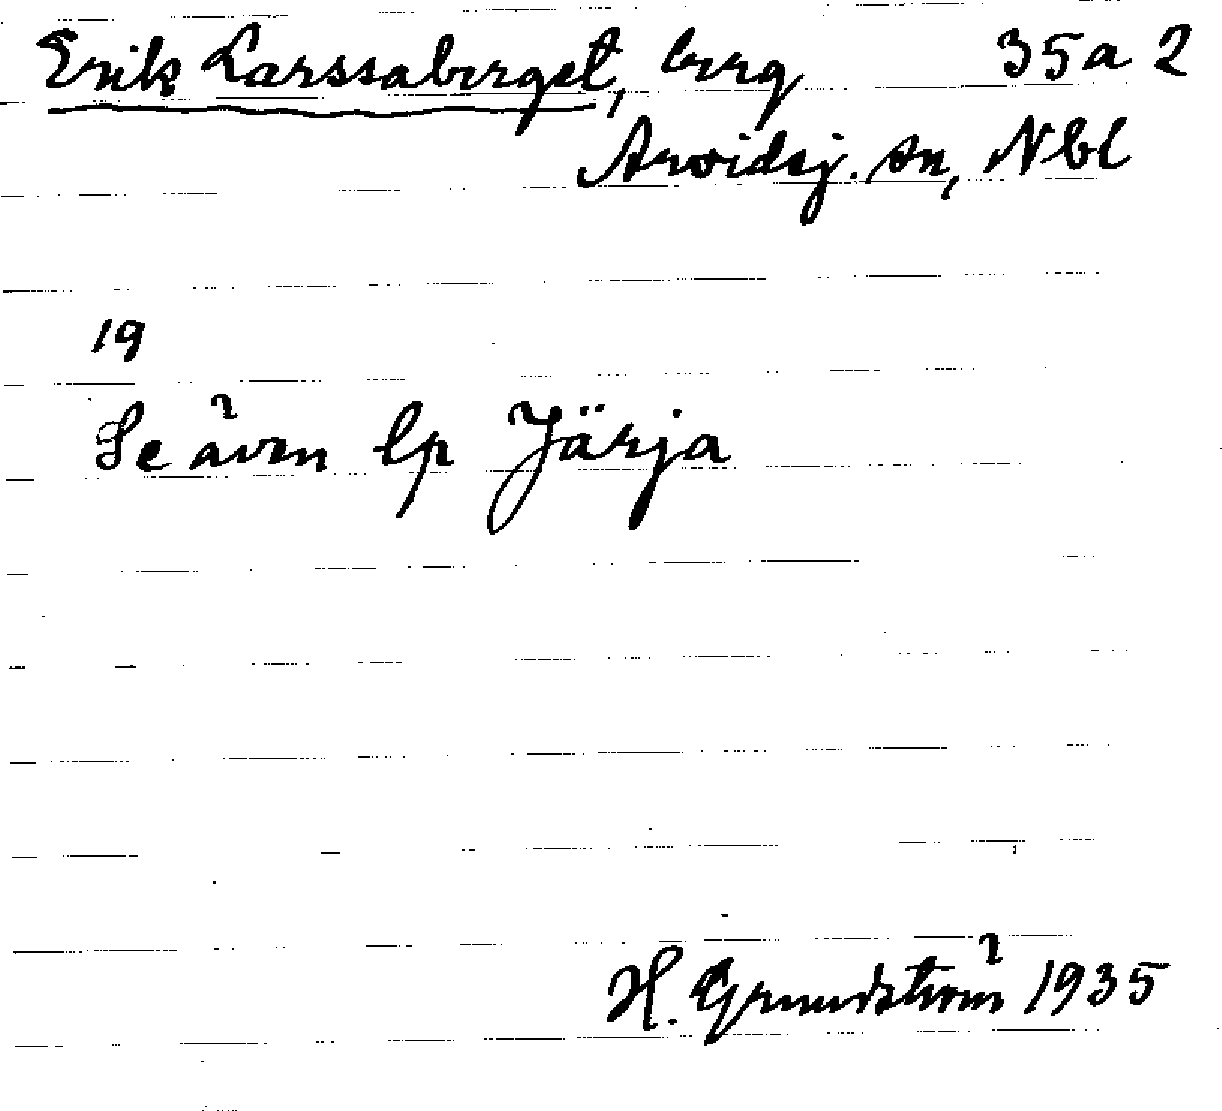 Erik Larssaberget, berg 35a 2
Arvidsj. sn, Nbl
19
Se även lp Järja
H. Grundström 1935